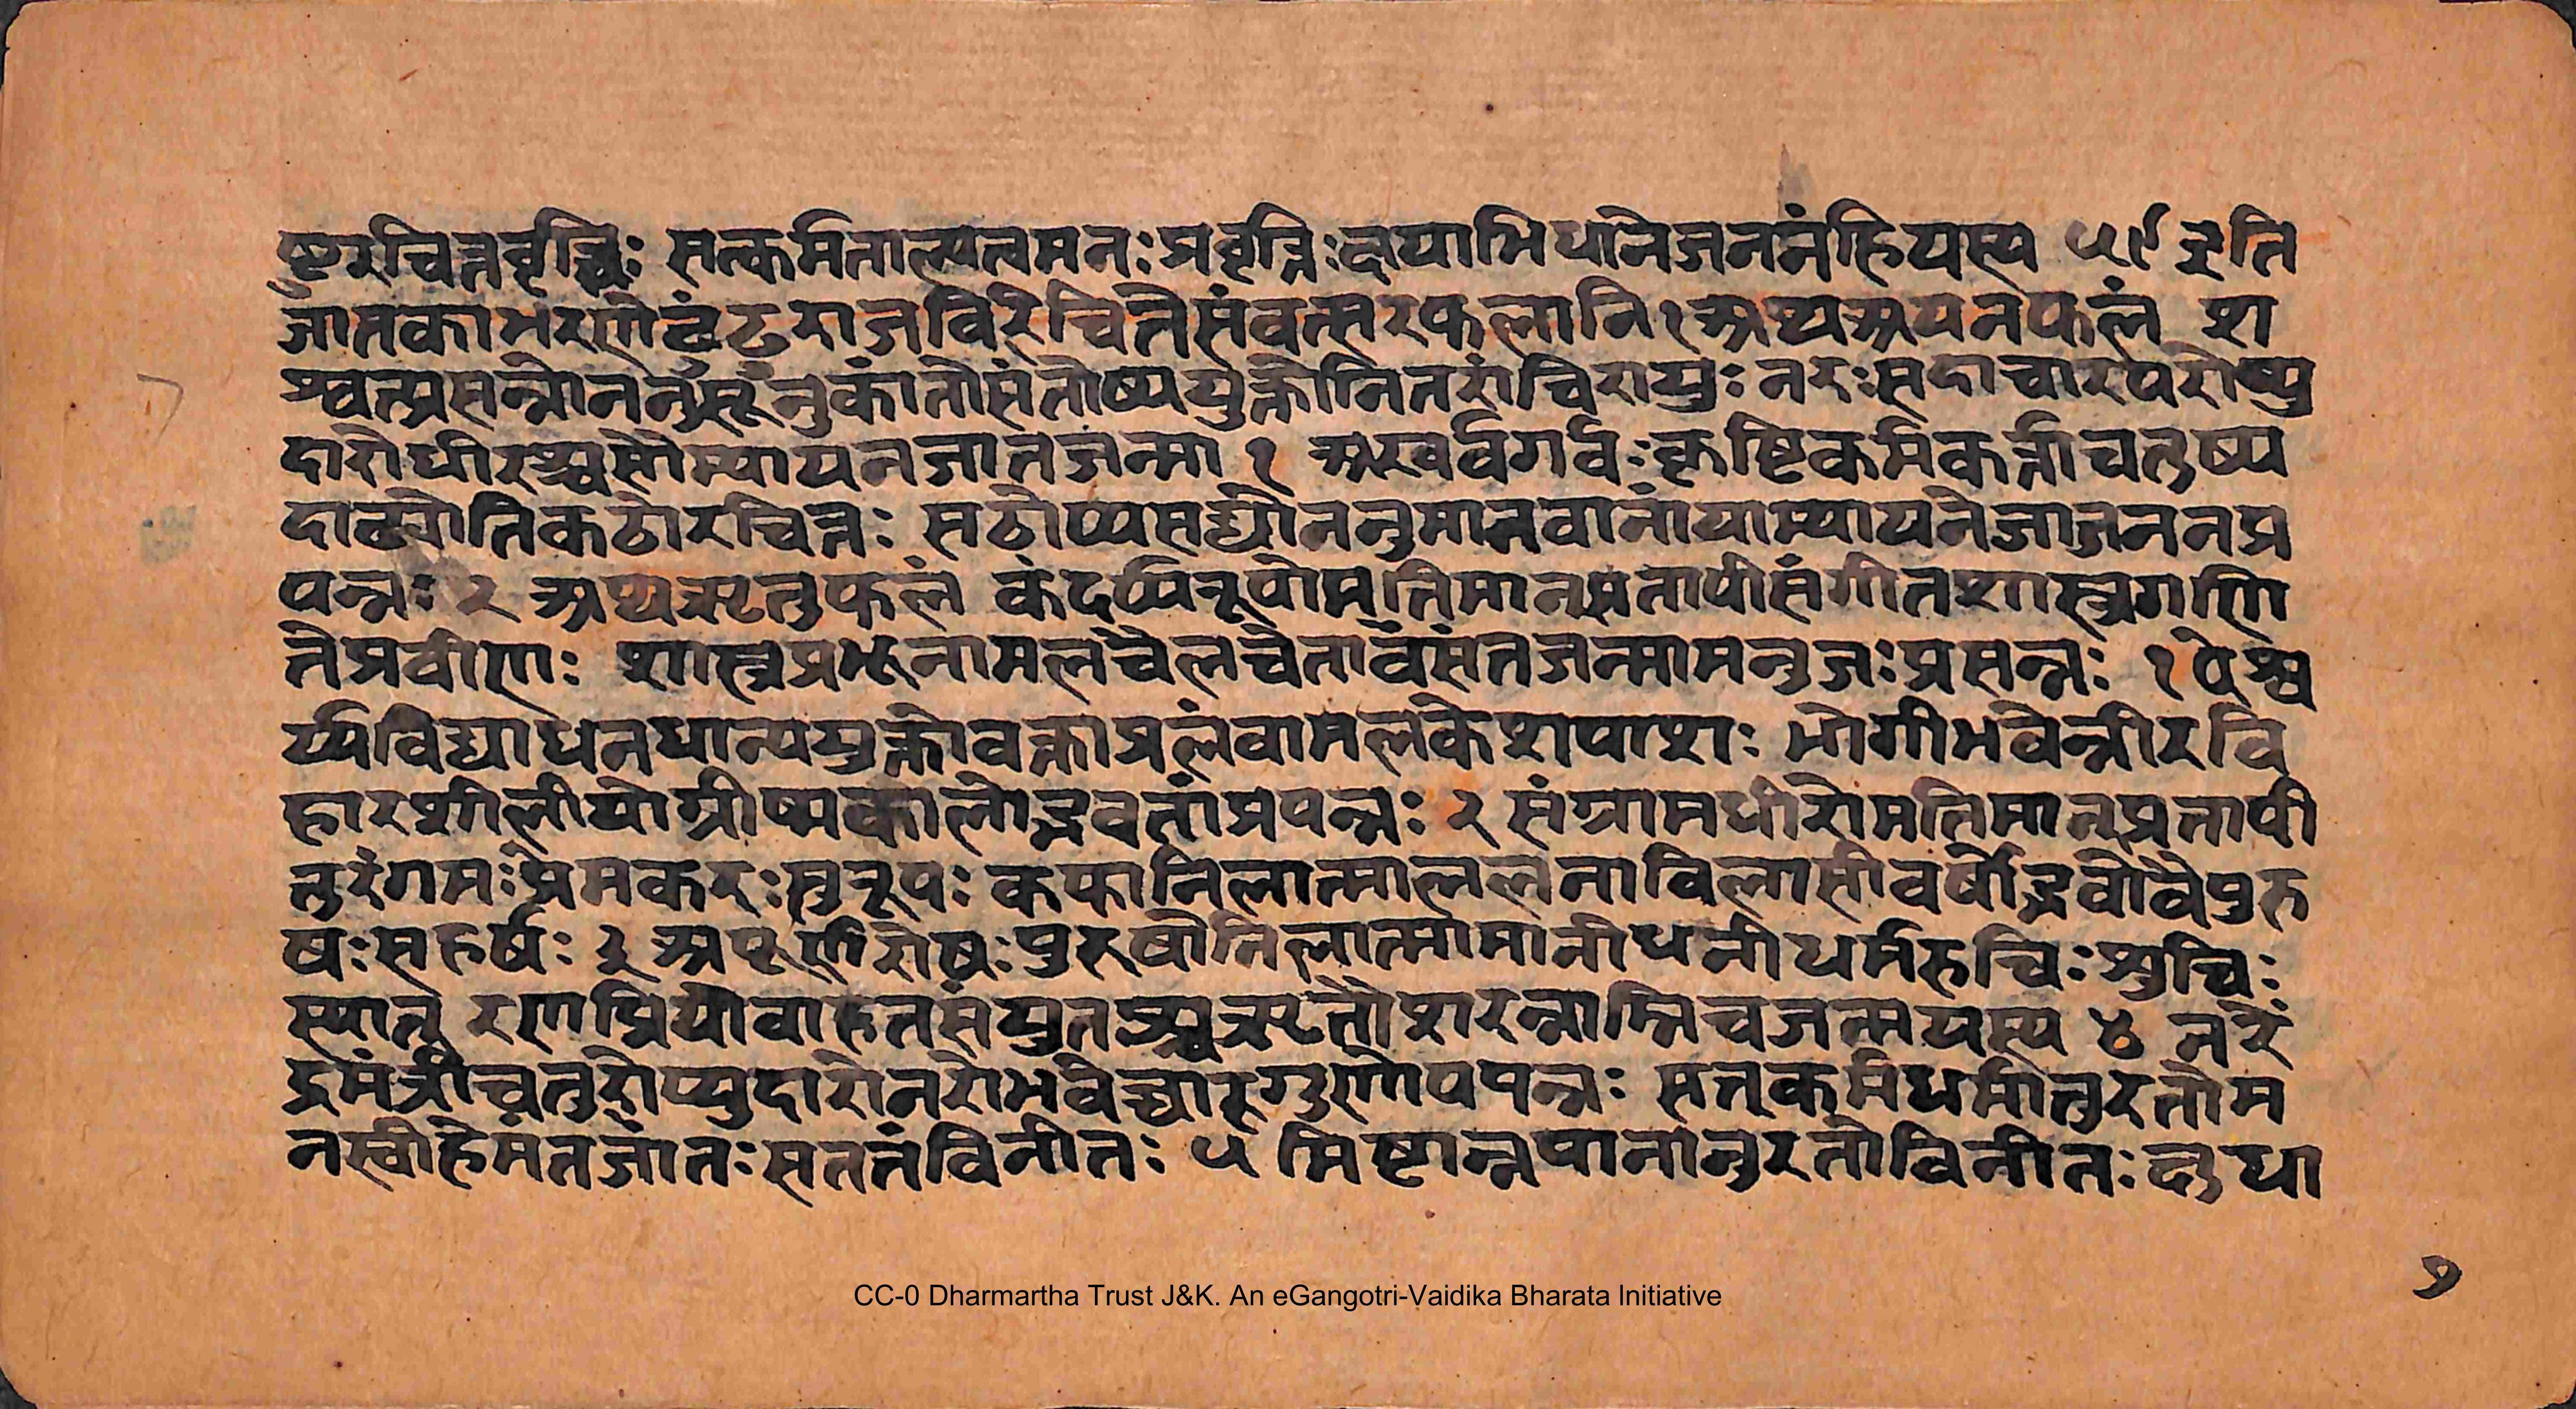 ष्टुरचित्तवृत्तिः सत्कर्मतात्यल्पमनःप्रवृत्तिःक्षयाभिधानेजननंहियस्य ५९ इति
जातकाभरणेढुंढराजविरचितेसंवत्सरफलानि१अथअयनफलं श
श्वत्प्रसन्नोननुसूनुकांतोसंतोष्ययुक्तोनितरांचिरायुः नरःसदाचारपरोप्यु
दारोधीरश्चसौम्यायनजातजन्मा १ अखर्वगर्वःकृषिकर्मकर्त्ताचतुष्प
दाढ्योतिकठोरचित्तः सठोप्यसह्योननुमानवानांयाम्यायनेजाजननप्र
पन्नः २ अथऋतुफलं कंदर्प्परूपोमतिमान्प्रतापीसंगीतशास्त्रगणि
तेप्रवीणः शास्त्रप्रभूनामलचेलचेतावसंतजन्मामनुजःप्रसन्नः १ ऐश्व
र्य्यविद्याधनधान्ययुक्तोवक्ताप्रलंवामलकेशपाशः भोगीभवेन्नीरवि
हारशीलीयोग्रीष्मकालोद्भवतांप्रपन्नः २ संग्रामधीरोमतिमान्प्रतापी
तुरंगमःप्रेमकरःसुरूपः कफानिलात्माललनाविलासीवर्षोद्भवोवैपुरु
षःसहर्षः ३ अपूर्णरोषःपुरुषोनिलात्मामानीधनीधर्मरुचिःशुचिः
स्यात् रणप्रियोवाहनसंयुतश्चऋतौशरन्नाम्निचजन्मयस्य ४ नरें
द्रमंत्रीचतुरोप्युदारोनरोभवेच्चारुगुणोपपन्नः सत्कर्मधर्मानुरतोम
नस्वीहेमंतजातःसततंविनीतः ५ मिष्टान्नपानानुरतोविनीतःक्षुधा
७
CC-0 Dharmartha Trust J&K. An eGangotri-Vaidika Bharata Initiative